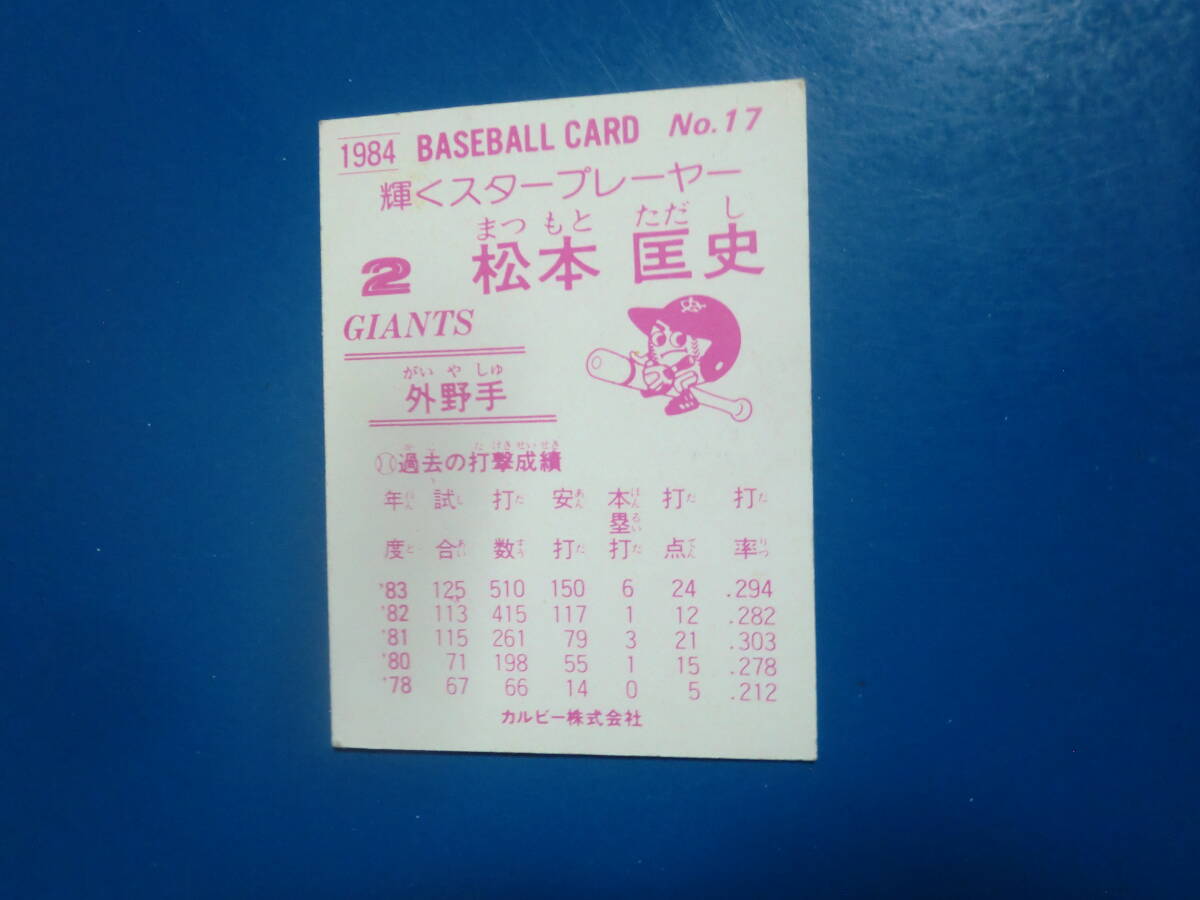 1984 BASEBALL CARD No.17
輝くスタープレーヤー
まつ もと ただ し
2 松本 匡史
GIANTS
がい や しゅ
外野手
だ げき せい せき
過去の打撃成績
年ねん 試し 打だ 安あん 本ほん 打だ 打だ
塁るい
度ど 合あい 数すう 打だ 打だ 点てん 率りつ
'83 125 510 150 6 24 .294
'82 113 415 117 1 12 .282
'81 115 261 79 3 21 .303
'80 71 198 55 1 15 .278
'78 67 66 14 0 5 .212
カルビー株式会社